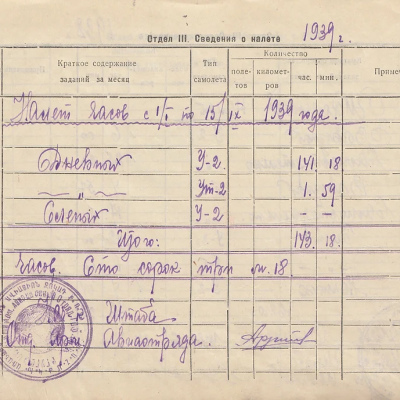 Отдел III. Сведения о налете 1939 г.
Краткое содержание заданий за месяц
Тип самолета
Количество
поле-тов
километ-ров
час.
мин.
Приме
Налет часов с 1/I по 15/IX 1939 года.
Дневных У-2. 141. 18.
—„— Ут-2 1. 59.
Слепых У-2 — —
Итого: 143. 18.
Часов. Сто сорок три м. 18.
Штаба
Отд. Авиаотряда.